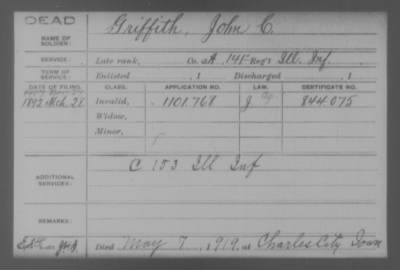 DEAD
NAME OF SOLDIER: Griffith, John C.
SERVICE: Late rank, Co. A 148 Reg't Ill. Inf.
TERM OF SERVICE: Enlisted , 1 Discharged , 1
DATE OF FILING. CLASS. APPLICATION NO. LAW. CERTIFICATE NO.
1892 Mch. 28 Invalid, 1101.768 J 844.075
Widow,
Minor,
ADDITIONAL SERVICES: C 153 Ill Inf
REMARKS:
Died May 7, 1919, at Charles City Iowa